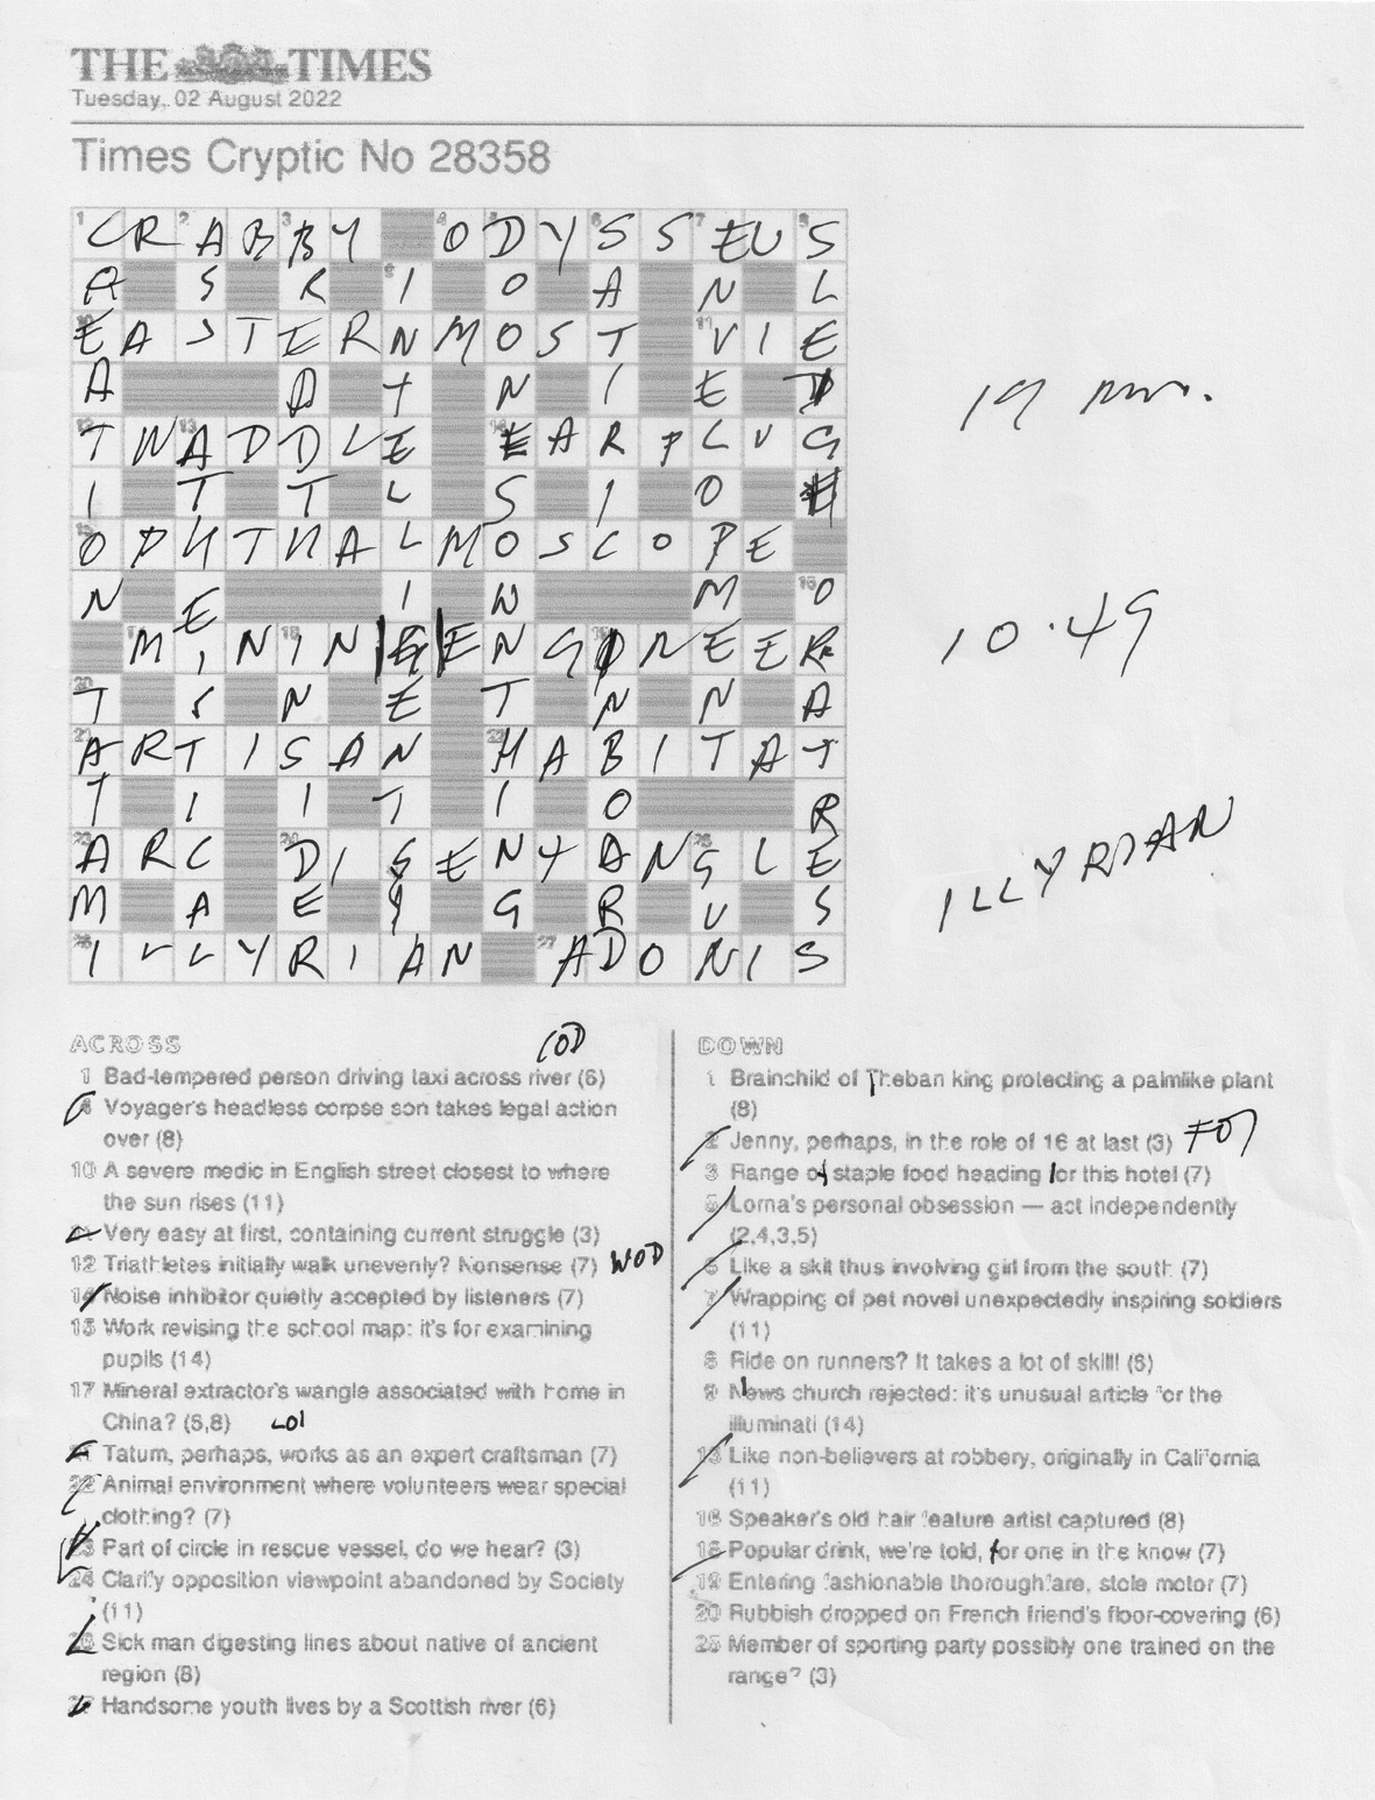 THE TIMES
Tuesday, 02 August 2022
Times Cryptic No 28358
CRABBY ODYSSEUS
A S R I O A N L
EASTERNMOST VIE
A D T N I E D
TWADDLE EARPLUG
I T T L S I O E
OPHTHALMOSCOPE
N E I W M O
MININGENGINEER
T S N E T N N A
ARTISAN HABITAT
T I I T I O R
ARC DISENTANGLES
M A E I G R U S
ILLYRIAN ADONIS
19 mn.
10.49
ILLYRIAN
ACROSS
COD
1 Bad-tempered person driving taxi across river (6)
4 Voyager's headless corpse son takes legal action
over (8)
10 A severe medic in English street closest to where
the sun rises (11)
11 Very easy at first, containing current struggle (3)
12 Triathletes initially walk unevenly? Nonsense (7) WOD
14 Noise inhibitor quietly accepted by listeners (7)
15 Work revising the school map: it's for examining
pupils (14)
17 Mineral extractor's wangle associated with home in
China? (6,8) LOI
21 Tatum, perhaps, works as an expert craftsman (7)
22 Animal environment where volunteers wear special
clothing? (7)
23 Part of circle in rescue vessel, do we hear? (3)
24 Clarify opposition viewpoint abandoned by Society
(11)
26 Sick man digesting lines about native of ancient
region (8)
27 Handsome youth lives by a Scottish river (6)
DOWN
1 Brainchild of Theban king protecting a palmlike plant
(8)
2 Jenny, perhaps, in the role of 16 at last (3) FOI
3 Range of staple food heading for this hotel (7)
5 Lorna's personal obsession — act independently
(2,4,3,5)
6 Like a skit thus involving girl from the south (7)
7 Wrapping of pet novel unexpectedly inspiring soldiers
(11)
8 Ride on runners? It takes a lot of skill! (6)
9 News church rejected: it's unusual article for the
illuminati (14)
13 Like non-believers at robbery, originally in California
(11)
16 Speaker's old hair feature artist captured (8)
18 Popular drink, we're told, for one in the know (7)
19 Entering fashionable thoroughfare, stole motor (7)
20 Rubbish dropped on French friend's floor-covering (6)
25 Member of sporting party possibly one trained on the
range? (3)